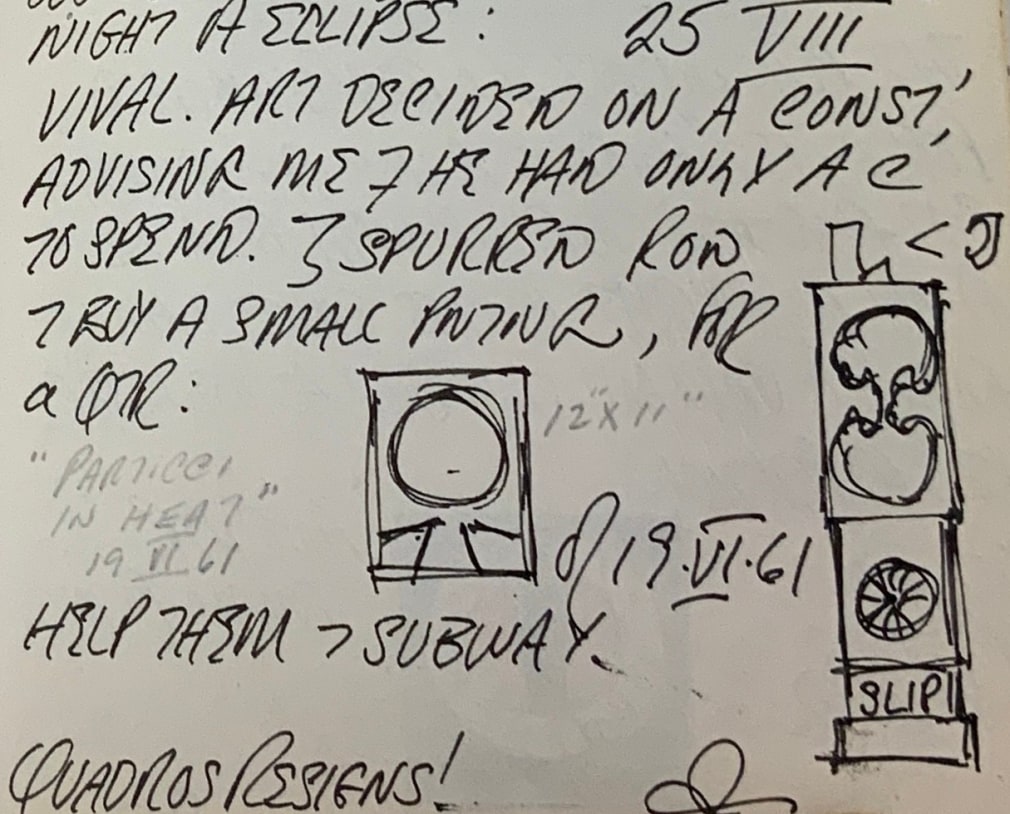 NIGHT A ECLIPSE: 25 VIII
VIVAL. ART DECIDED ON A CONST',
ADVISING ME T HE HAD ONLY A C
TO SPEND. I SPURRED ROD
T BUY A SMALL PNTING, FOR
a QTR:
12" X 11"
"PARTICCI
IN HEAT"
19 VI 61
19·VI·61
HELP THEM > SUBWAY.
SLIP
QUADROS RESIGNS!